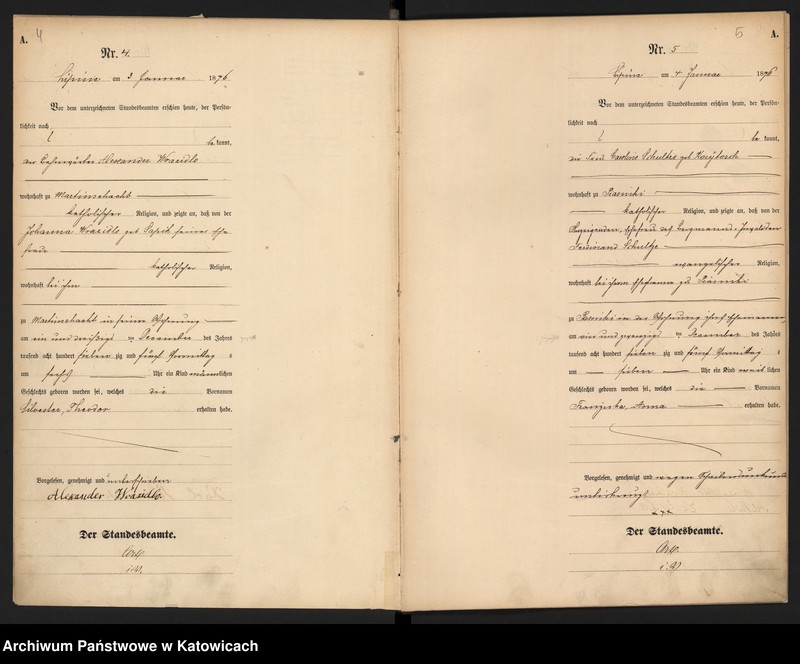 A.
4
Nr. 4.
Lipine am 3 Januar 1876.
Vor dem unterzeichneten Standesbeamten erschien heute, der Persön-
lichkeit nach
be kannt,
der Alexander Wrazidlo
wohnhaft zu Martinschacht
katholischer Religion, und zeigte an, daß von der
Johanna Wrazidlo geb. seiner Ehe
frau
katholischer Religion,
wohnhaft bei ihm
zu Martinschacht in seiner Wohnung
am ein und dreißigs ten Dezember des Jahres
tausend acht hundert sieben zig und fünf Vormittag s
um sechs Uhr ein Kind männlichen
Geschlechts geboren worden sei, welches die Vornamen
Silvester, Theodor erhalten habe.
Vorgelesen, genehmigt und unterschrieben
Alexander Wrazidlo.
Der Standesbeamte.
i.V.
5
A.
Nr. 5
Lipine am 4 Januar 1876
Vor dem unterzeichneten Standesbeamten erschien heute, der Persön-
lichkeit nach
be kannt,
die Frau Caroline Schultze geb.
wohnhaft zu Piasniki
katholischer Religion, und zeigte an, daß von der
Ehefrau des Bergmanns Invaliden
Ferdinand Schultze
evangelischer Religion,
wohnhaft bei ihrem Ehemanne zu Piasniki
zu Piasniki in der Wohnung ihres Ehemannes
am ein und zwanzigs ten Dezember des Jahres
tausend acht hundert sieben zig und fünf Vormittag s
um sieben Uhr ein Kind weib lichen
Geschlechts geboren worden sei, welches die Vornamen
Franziska, Anna erhalten habe.
Vorgelesen, genehmigt und wegen Schreibensunkunde
unterkreuzt
xxx
Der Standesbeamte.
i.V.
Archiwum Państwowe w Katowicach